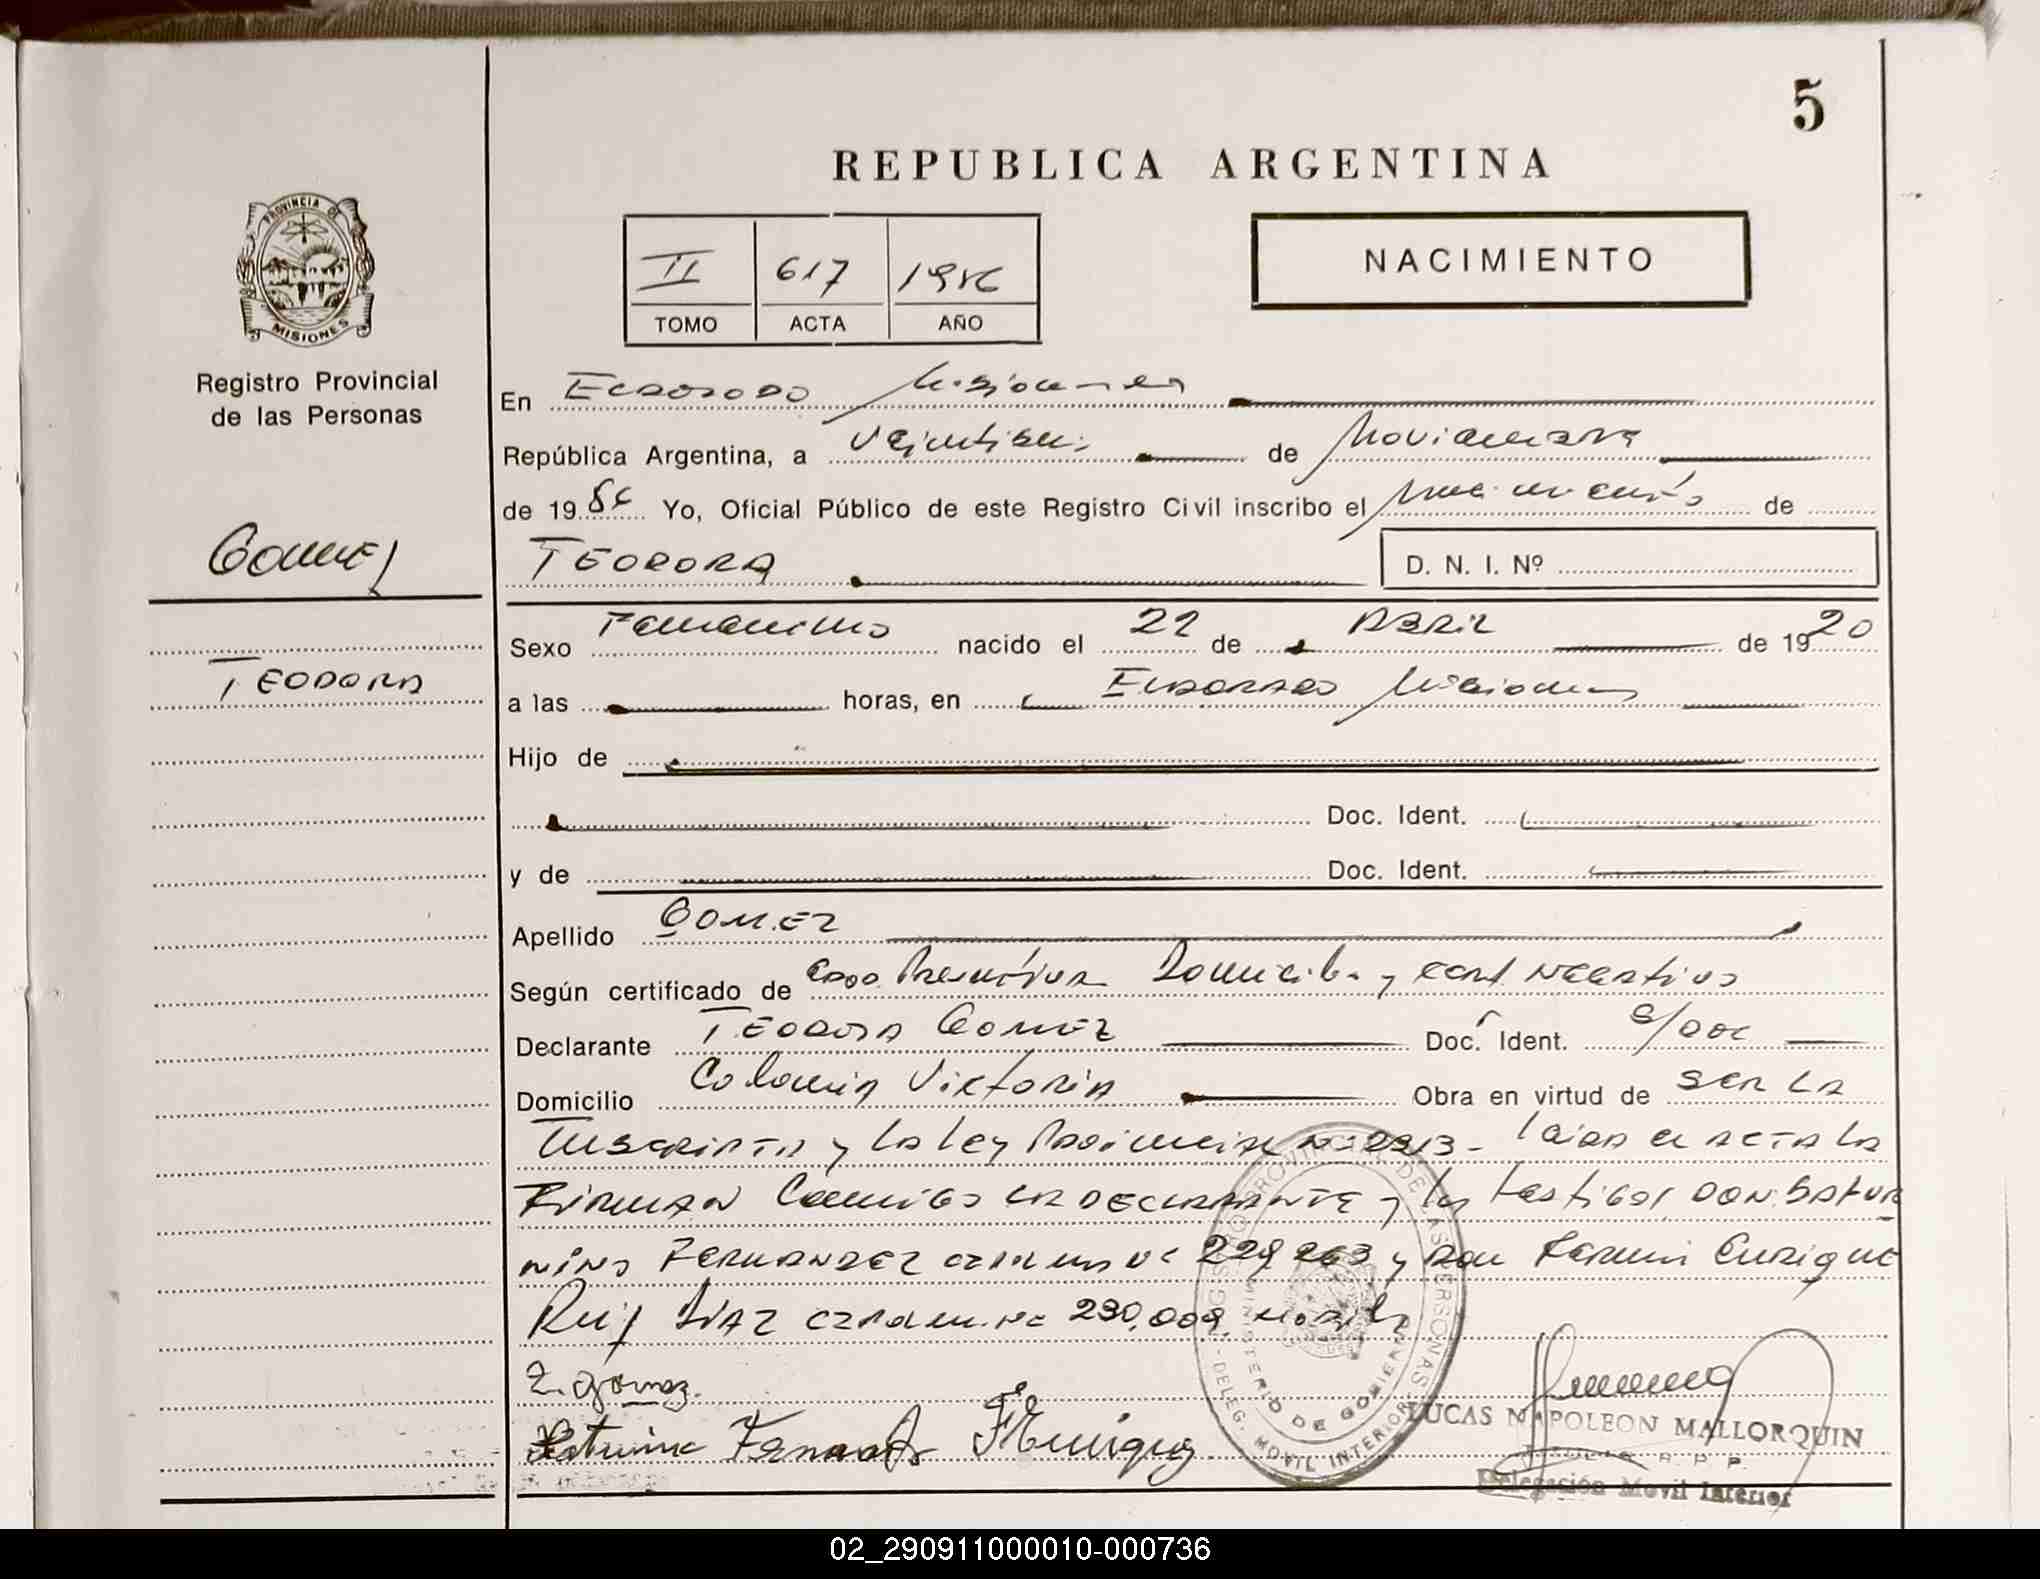 5
REPUBLICA ARGENTINA
PROVINCIA DE
MISIONES
II 617 1986
TOMO ACTA AÑO
NACIMIENTO
Registro Provincial
de las Personas
En Eldorado Misiones
República Argentina, a Veintiseis de Noviembre
de 1986 Yo, Oficial Público de este Registro Civil inscribo el nacimiento de
TEODORA D. N. I. Nº
GOMEZ
TEODORA
Sexo Femenino nacido el 22 de Abril de 1920
a las horas, en Eldorado Misiones
Hijo de
Doc. Ident.
y de Doc. Ident.
Apellido GOMEZ
Según certificado de edad Presuntiva Domicilio y cert negativo
Declarante TEODORA GOMEZ Doc. Ident. S/DOC
Domicilio Colonia Victoria Obra en virtud de SER LA
Inscripta y la Ley Provincial Nº 2213 - leida el ACTA la
Firman conmigo LA DECLARANTE y los testigos DON SATUR
NINO FERNANDEZ 229,263 y Don Fermin Enrique
Ruiz DIAZ 230,009
T. gomez.
Saturnino Fernandez F Enriquez
REGISTRO PROVINCIAL DE LAS PERSONAS
MINISTERIO DE GOBIERNO
- DELEG. MOVIL INTERIOR -
LUCAS NAPOLEON MALLORQUIN
R. P. P.
Delegación Movil Interior
02_290911000010-000736